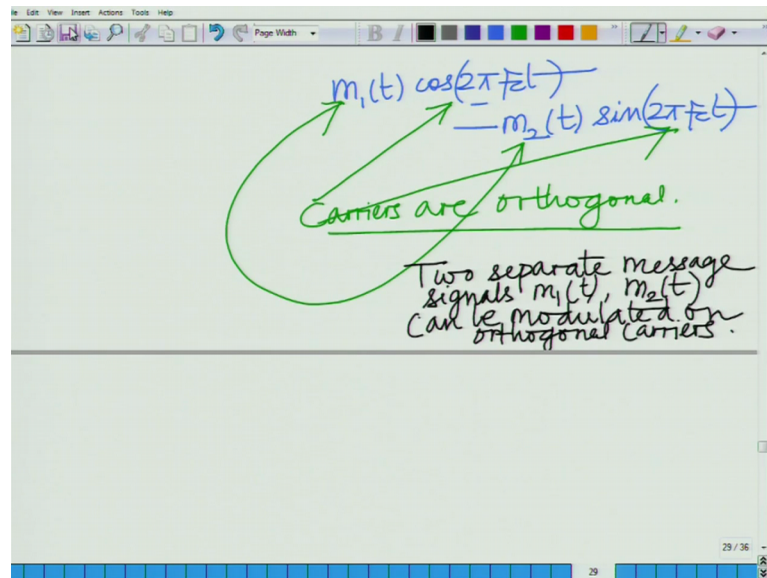 File Edit View Insert Actions Tools Help
Page Width
B I
m₁(t) cos(2πFct)
— m₂(t) sin(2πFct)
Carriers are orthogonal.
Two separate message
signals m₁(t), m₂(t)
Can be modulated on
orthogonal carriers.
29 / 36
29